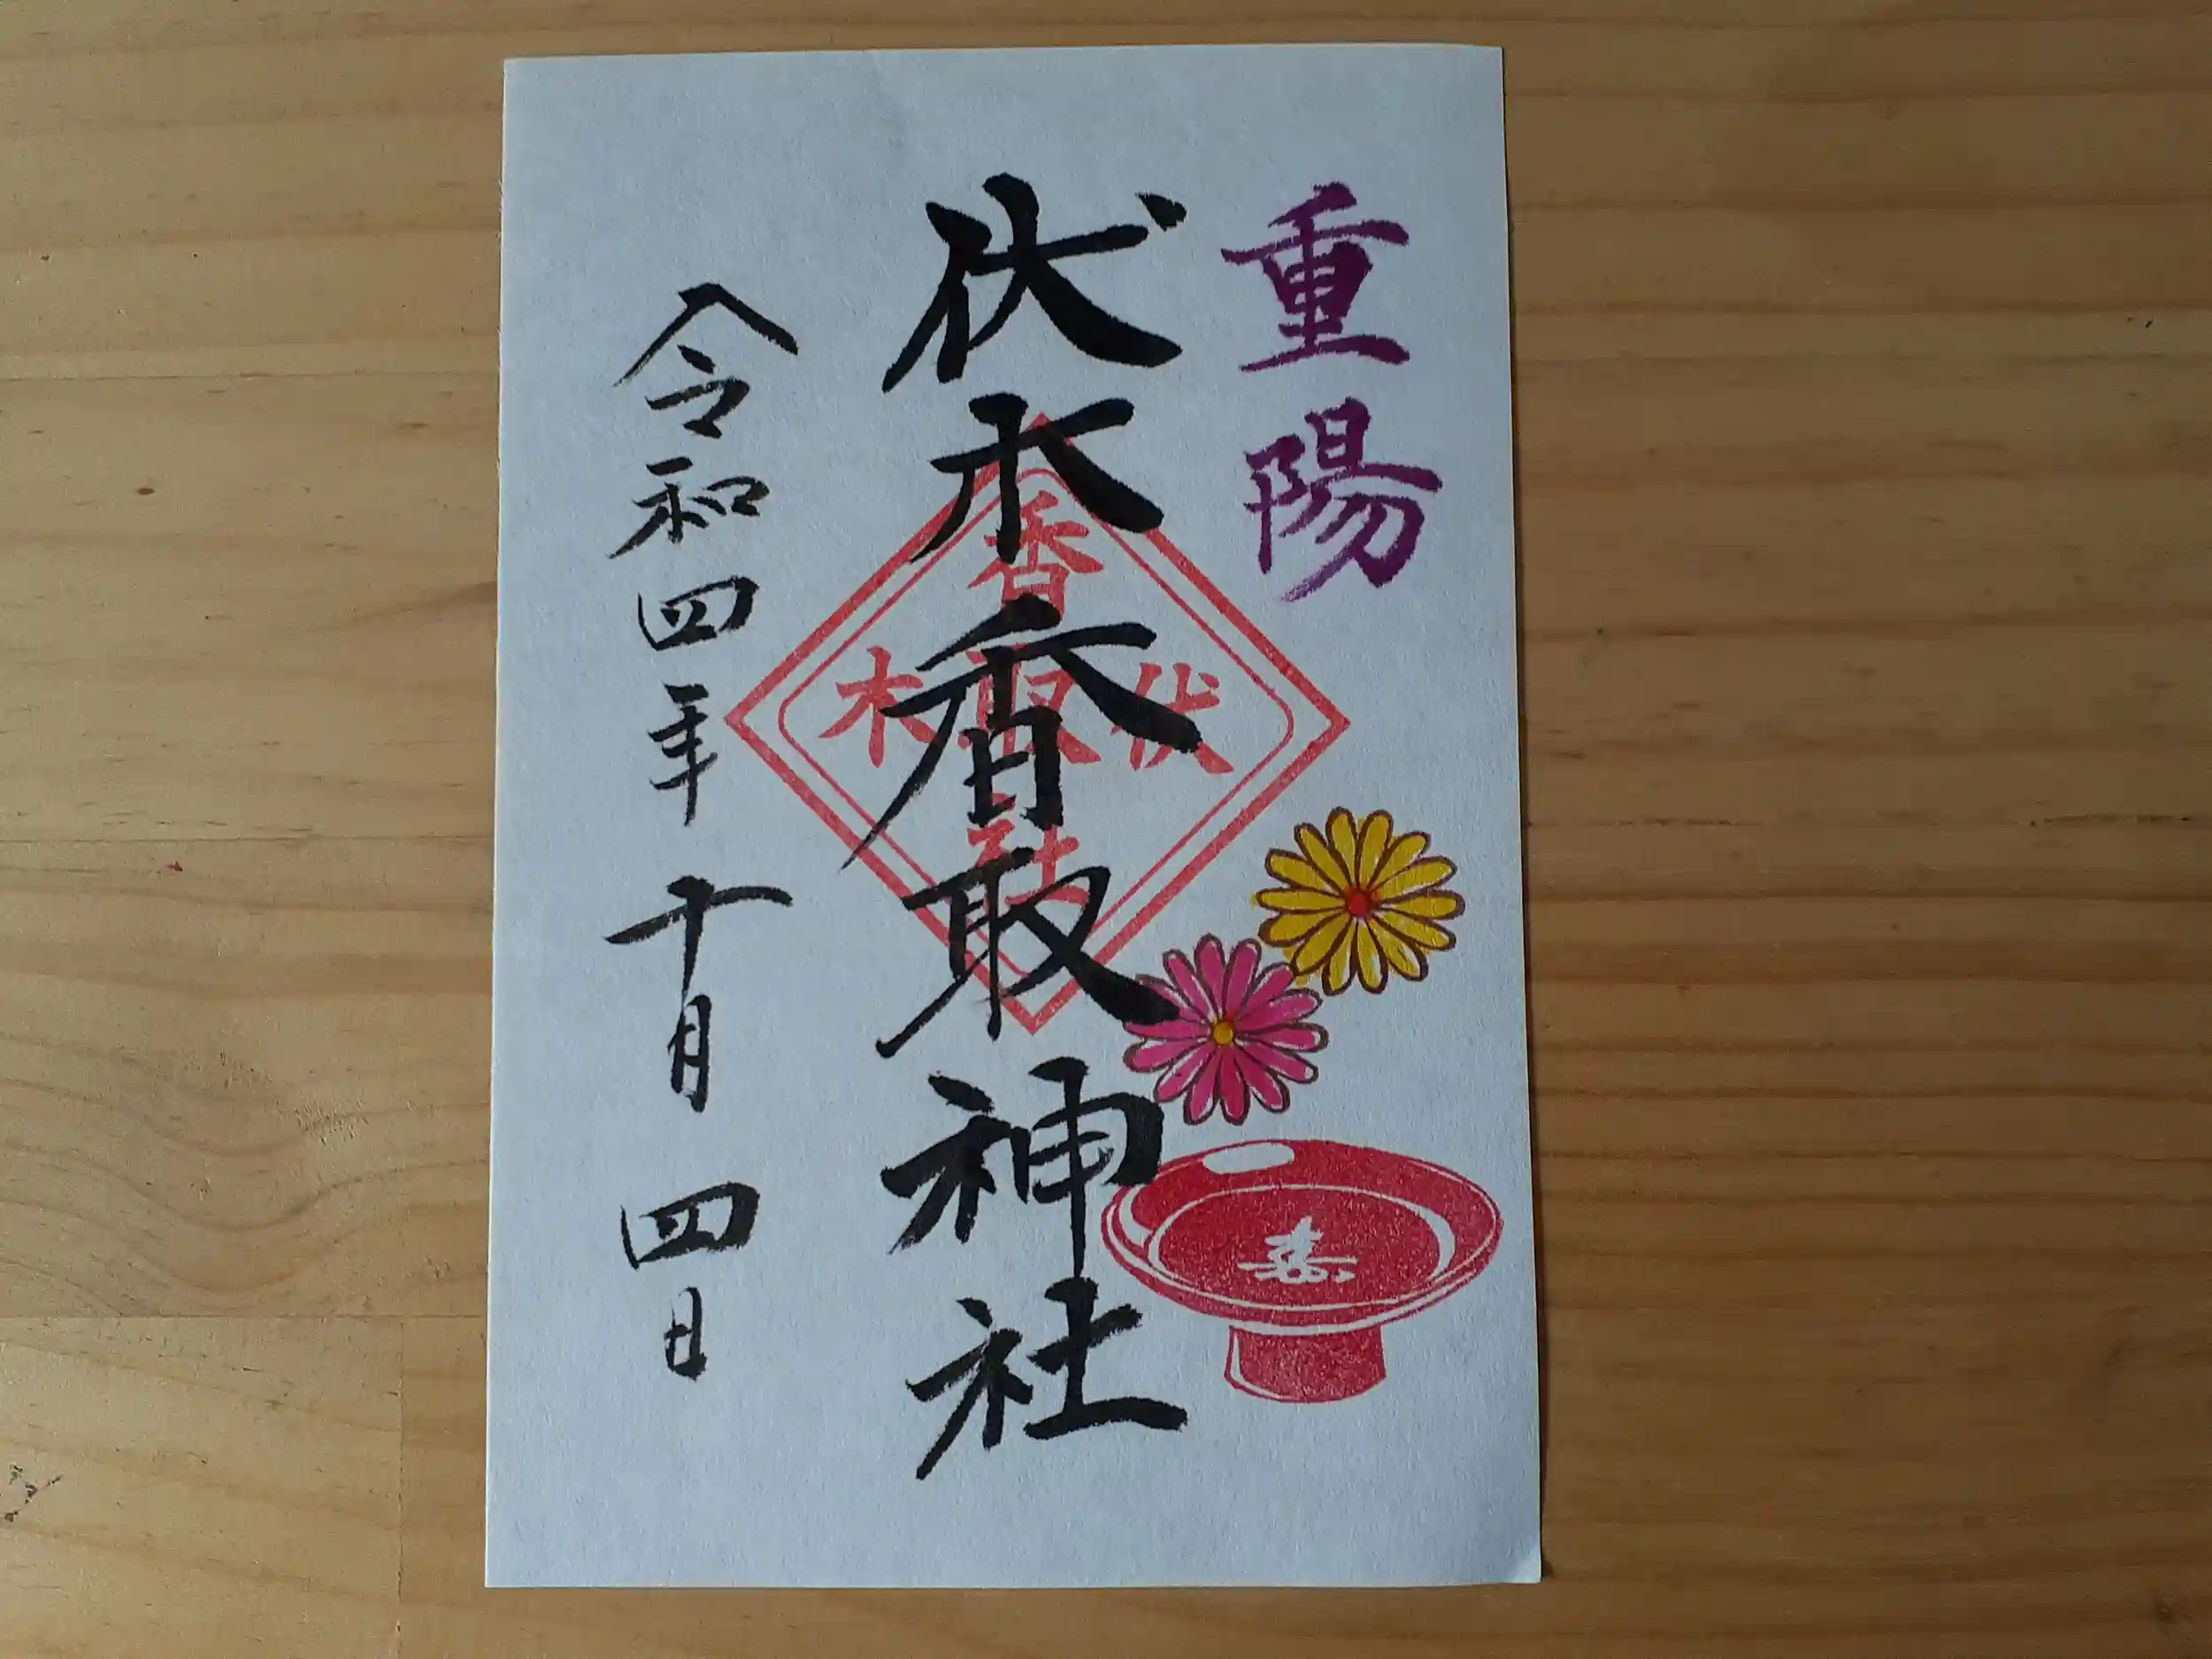 重陽
伏木香取神社
香
伏取木
社
令和四年十月四日
寿